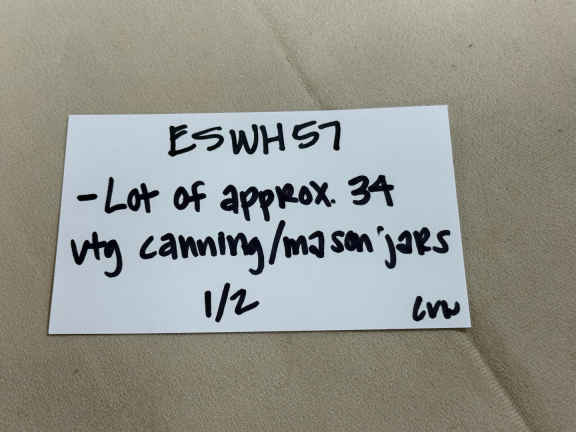 ESWH57
- Lot of approx. 34
vtg canning/mason jars
1/2
LVW